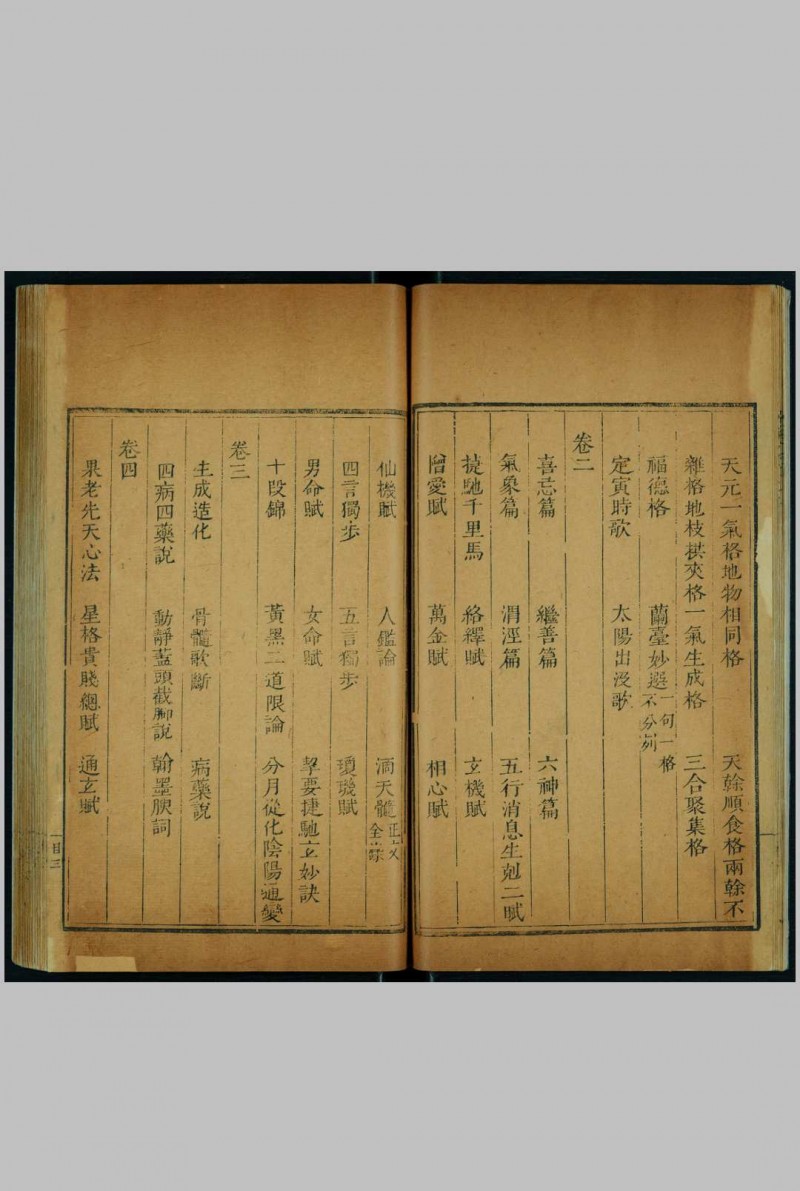 天元一氣格地物相同格 天榦順食格兩榦不
雜格地枝拱夾格一氣生成格 三合聚集格
福德格 蘭臺妙選一句一格不分別
定寅時歌 太陽出沒歌
卷二
喜忌篇 繼善篇 六神篇
氣象篇 渭涇篇 五行消息生剋二賦
捷馳千里馬 絡繹賦 玄機賦
憎愛賦 萬金賦 相心賦
仙機賦 人鑑論 滴天髓正文全錄
四言獨步 五言獨步 瓊璣賦
男命賦 女命賦 挈要捷馳玄妙訣
十段錦 黃黑二道限論 分月從化陰陽通變
卷三
生成造化 骨髓歌斷 病藥說
四病四藥說 動靜蓋頭截腳說 翰墨腴詞
卷四
果老先天心法 星格貴賤總賦 通玄賦
目 三